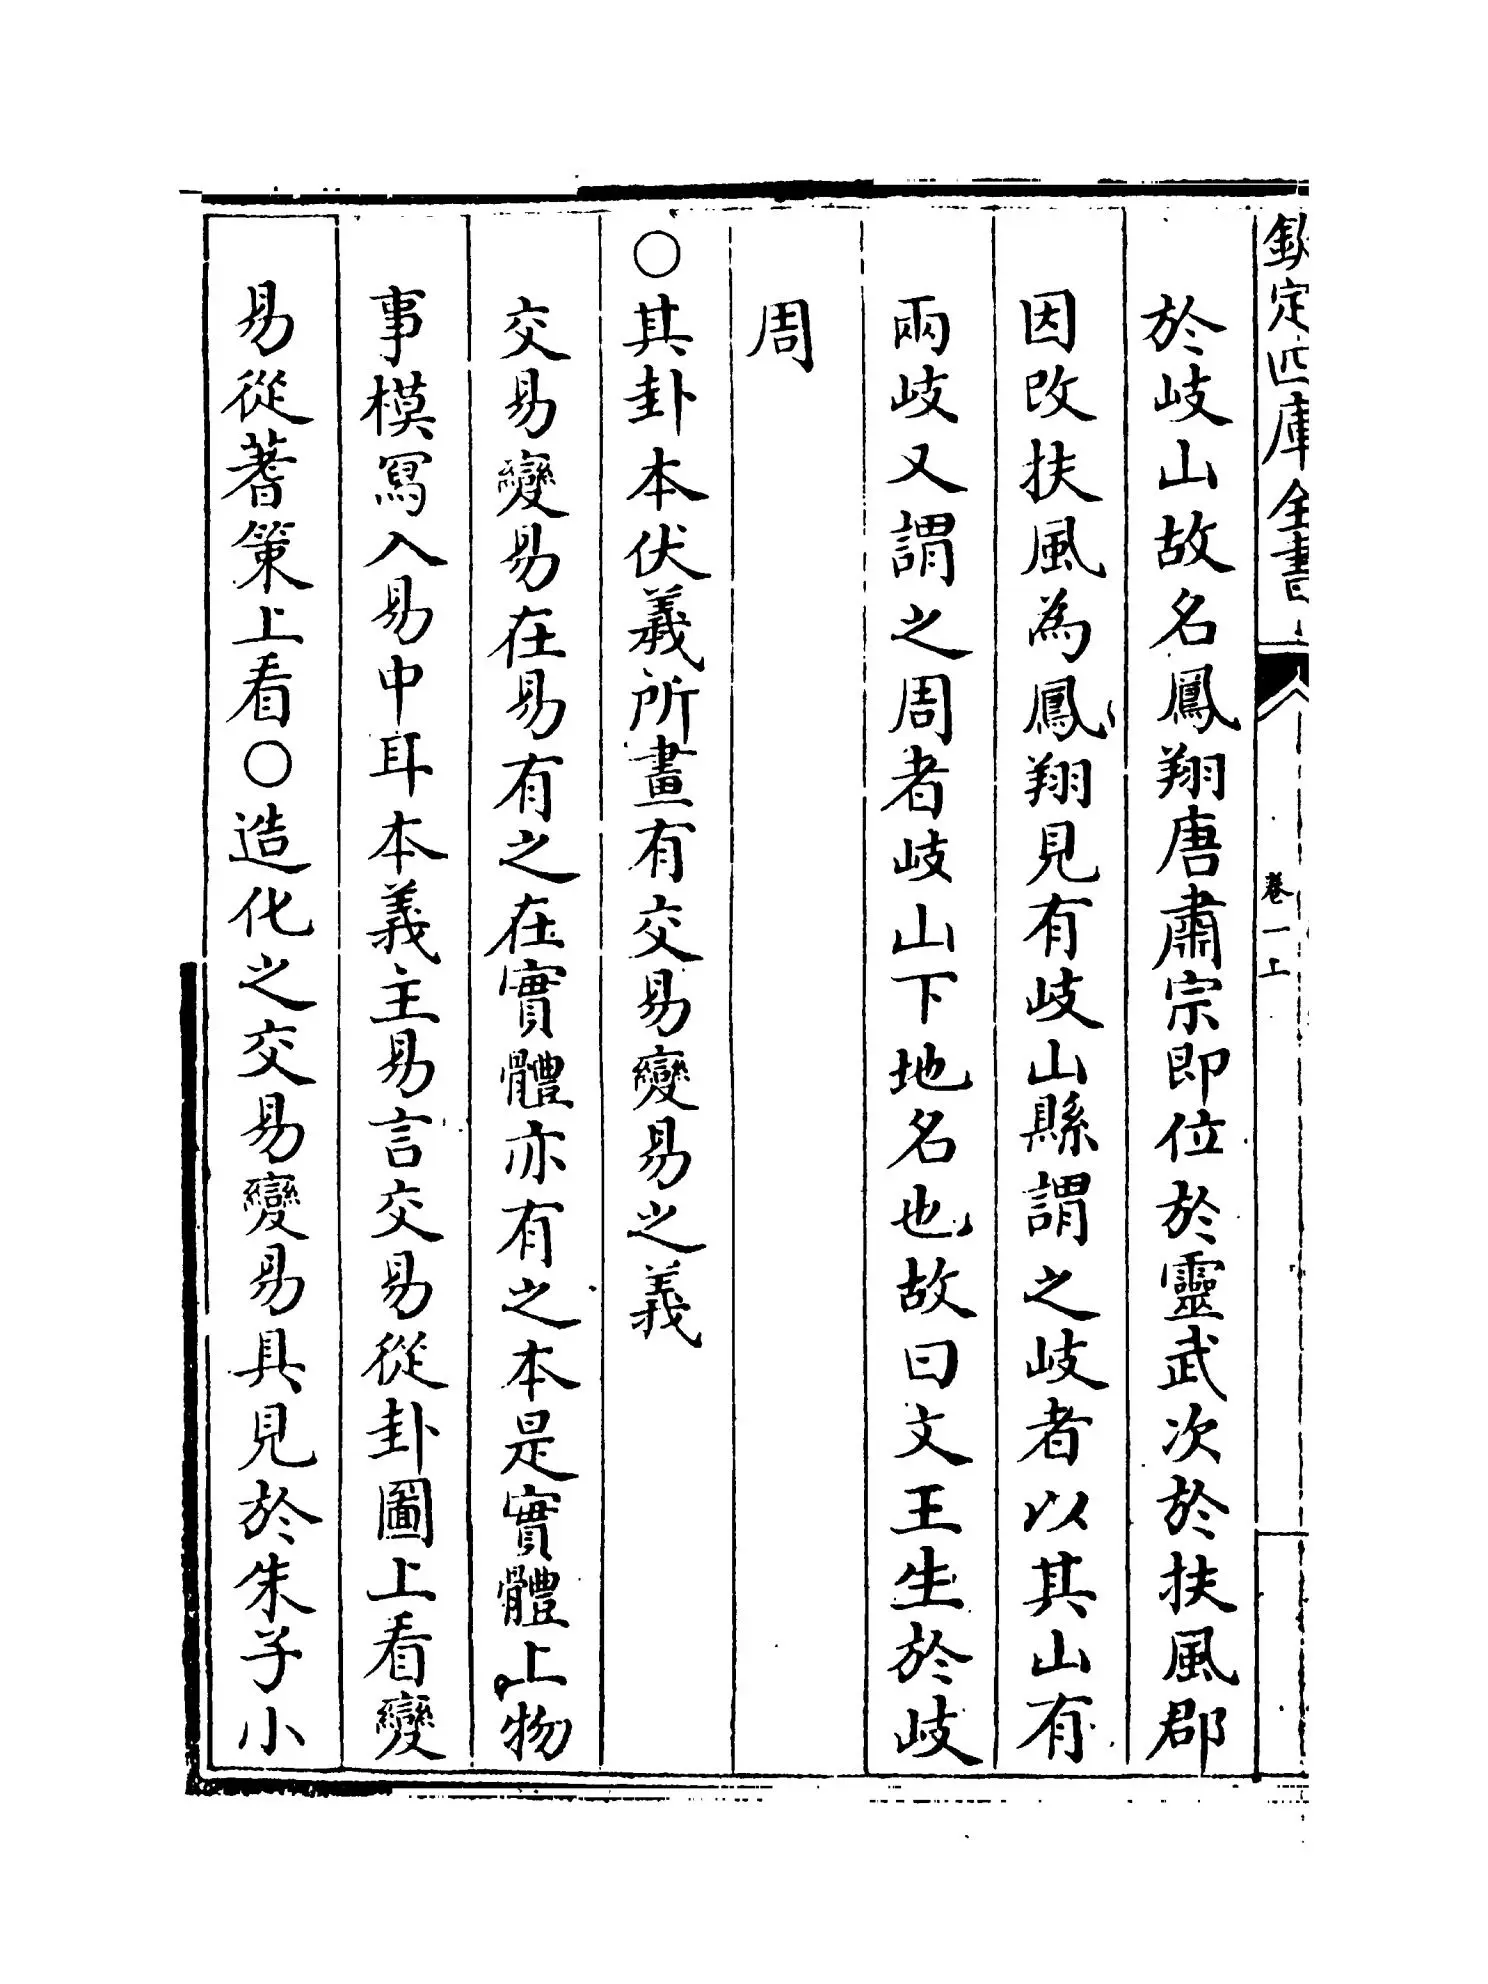 欽定四庫全書
卷一上
於岐山故名鳳翔唐肅宗即位於靈武次於扶風郡
因改扶風為鳳翔見有岐山縣謂之岐者以其山有
兩岐又謂之周者岐山下地名也故曰文王生於岐
周
○其卦本伏羲所畫有交易變易之義
交易變易在易有之在實體亦有之本是實體上物
事模寫入易中耳本義主易言交易從卦圖上看變
易從蓍策上看○造化之交易變易具見於朱子小